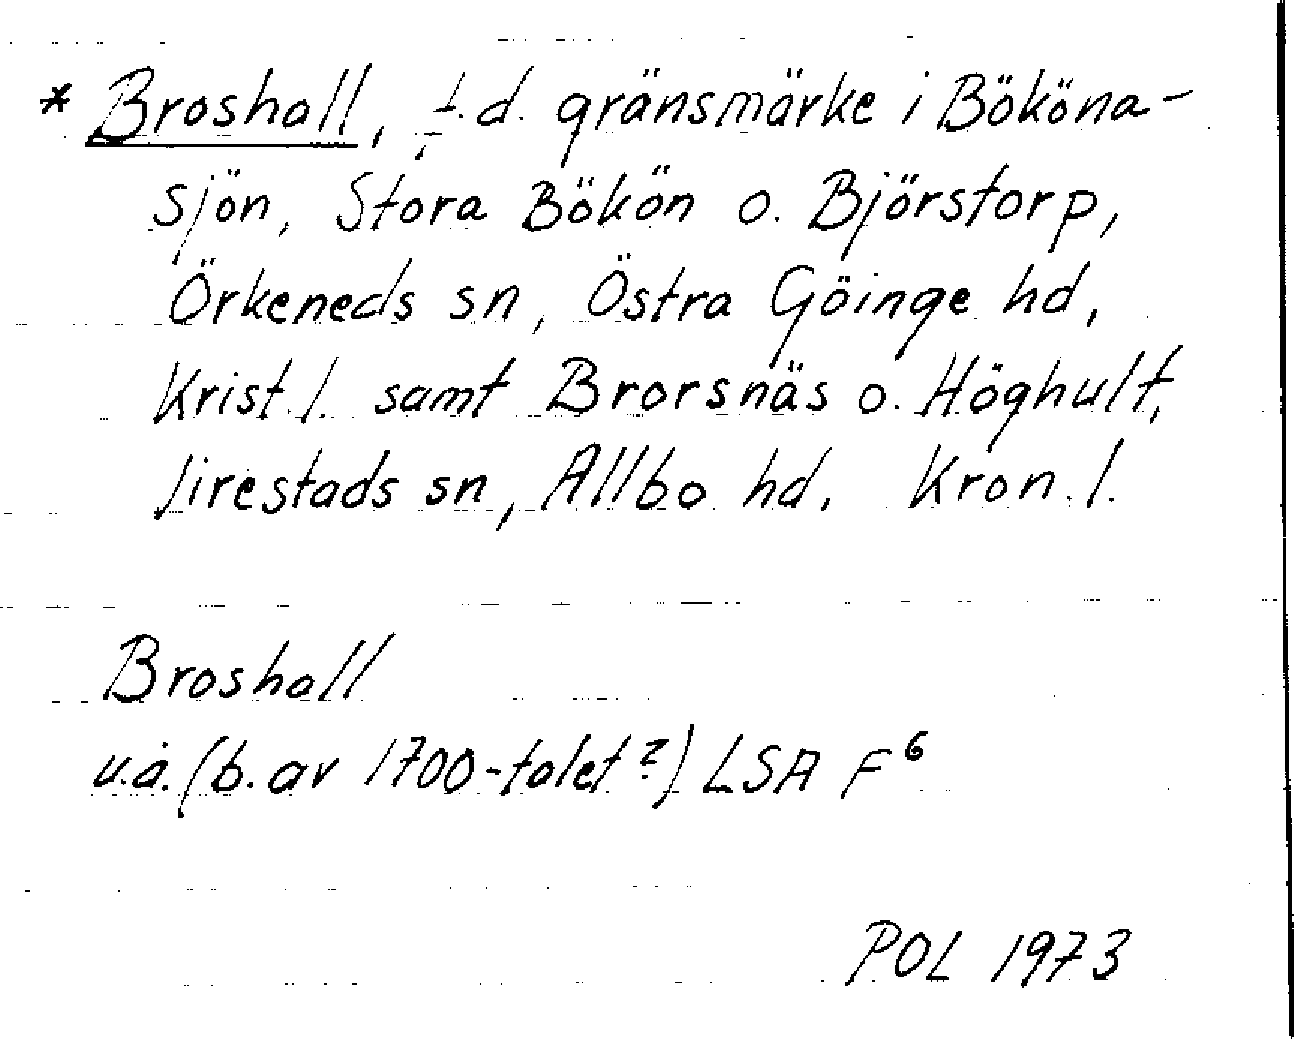 * Broshall, f.d. gränsmärke i Bököna-
sjön, Stora Bökön o. Björstorp,
Örkeneds sn, Östra Göinge hd,
Krist. l. samt Brorsnäs o. Höghult,
Virestads sn, Allbo hd, Kron. l.
Broshall
u.å. (b. av 1700-talet?) LSA F⁶
POL 1973